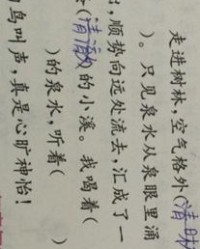 走进树林,空气格外(清
)。只见泉水从泉眼里涌
出,顺势向远处流去,汇成了一
(清澈)的小溪。我喝着(
)的泉水,听着( )
鸟叫声,真是心旷神怡!